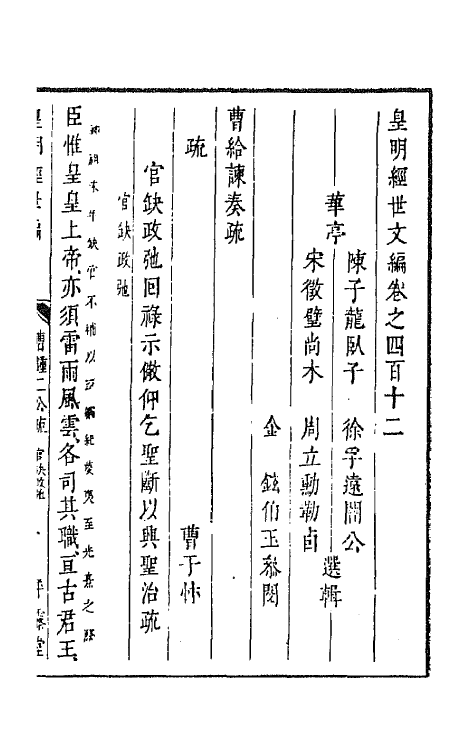 皇明經世文編卷之四百十二
華亭
陳子龍臥子　徐孚遠闇公
宋徵璧尚木　周立勳勒卣
選輯
金　鉉伯玉叅閱
曹給諫奏疏
曹于忭
疏
官缺政弛回祿示儆仰乞聖斷以興聖治疏
官缺政弛
神祖末年缺官不補以至綱紀
至光熹之際
臣惟皇皇上帝亦須雷雨風雲各司其職亘古君王
皇明經世編
曹鍾二公疏
官缺政弛
平露堂